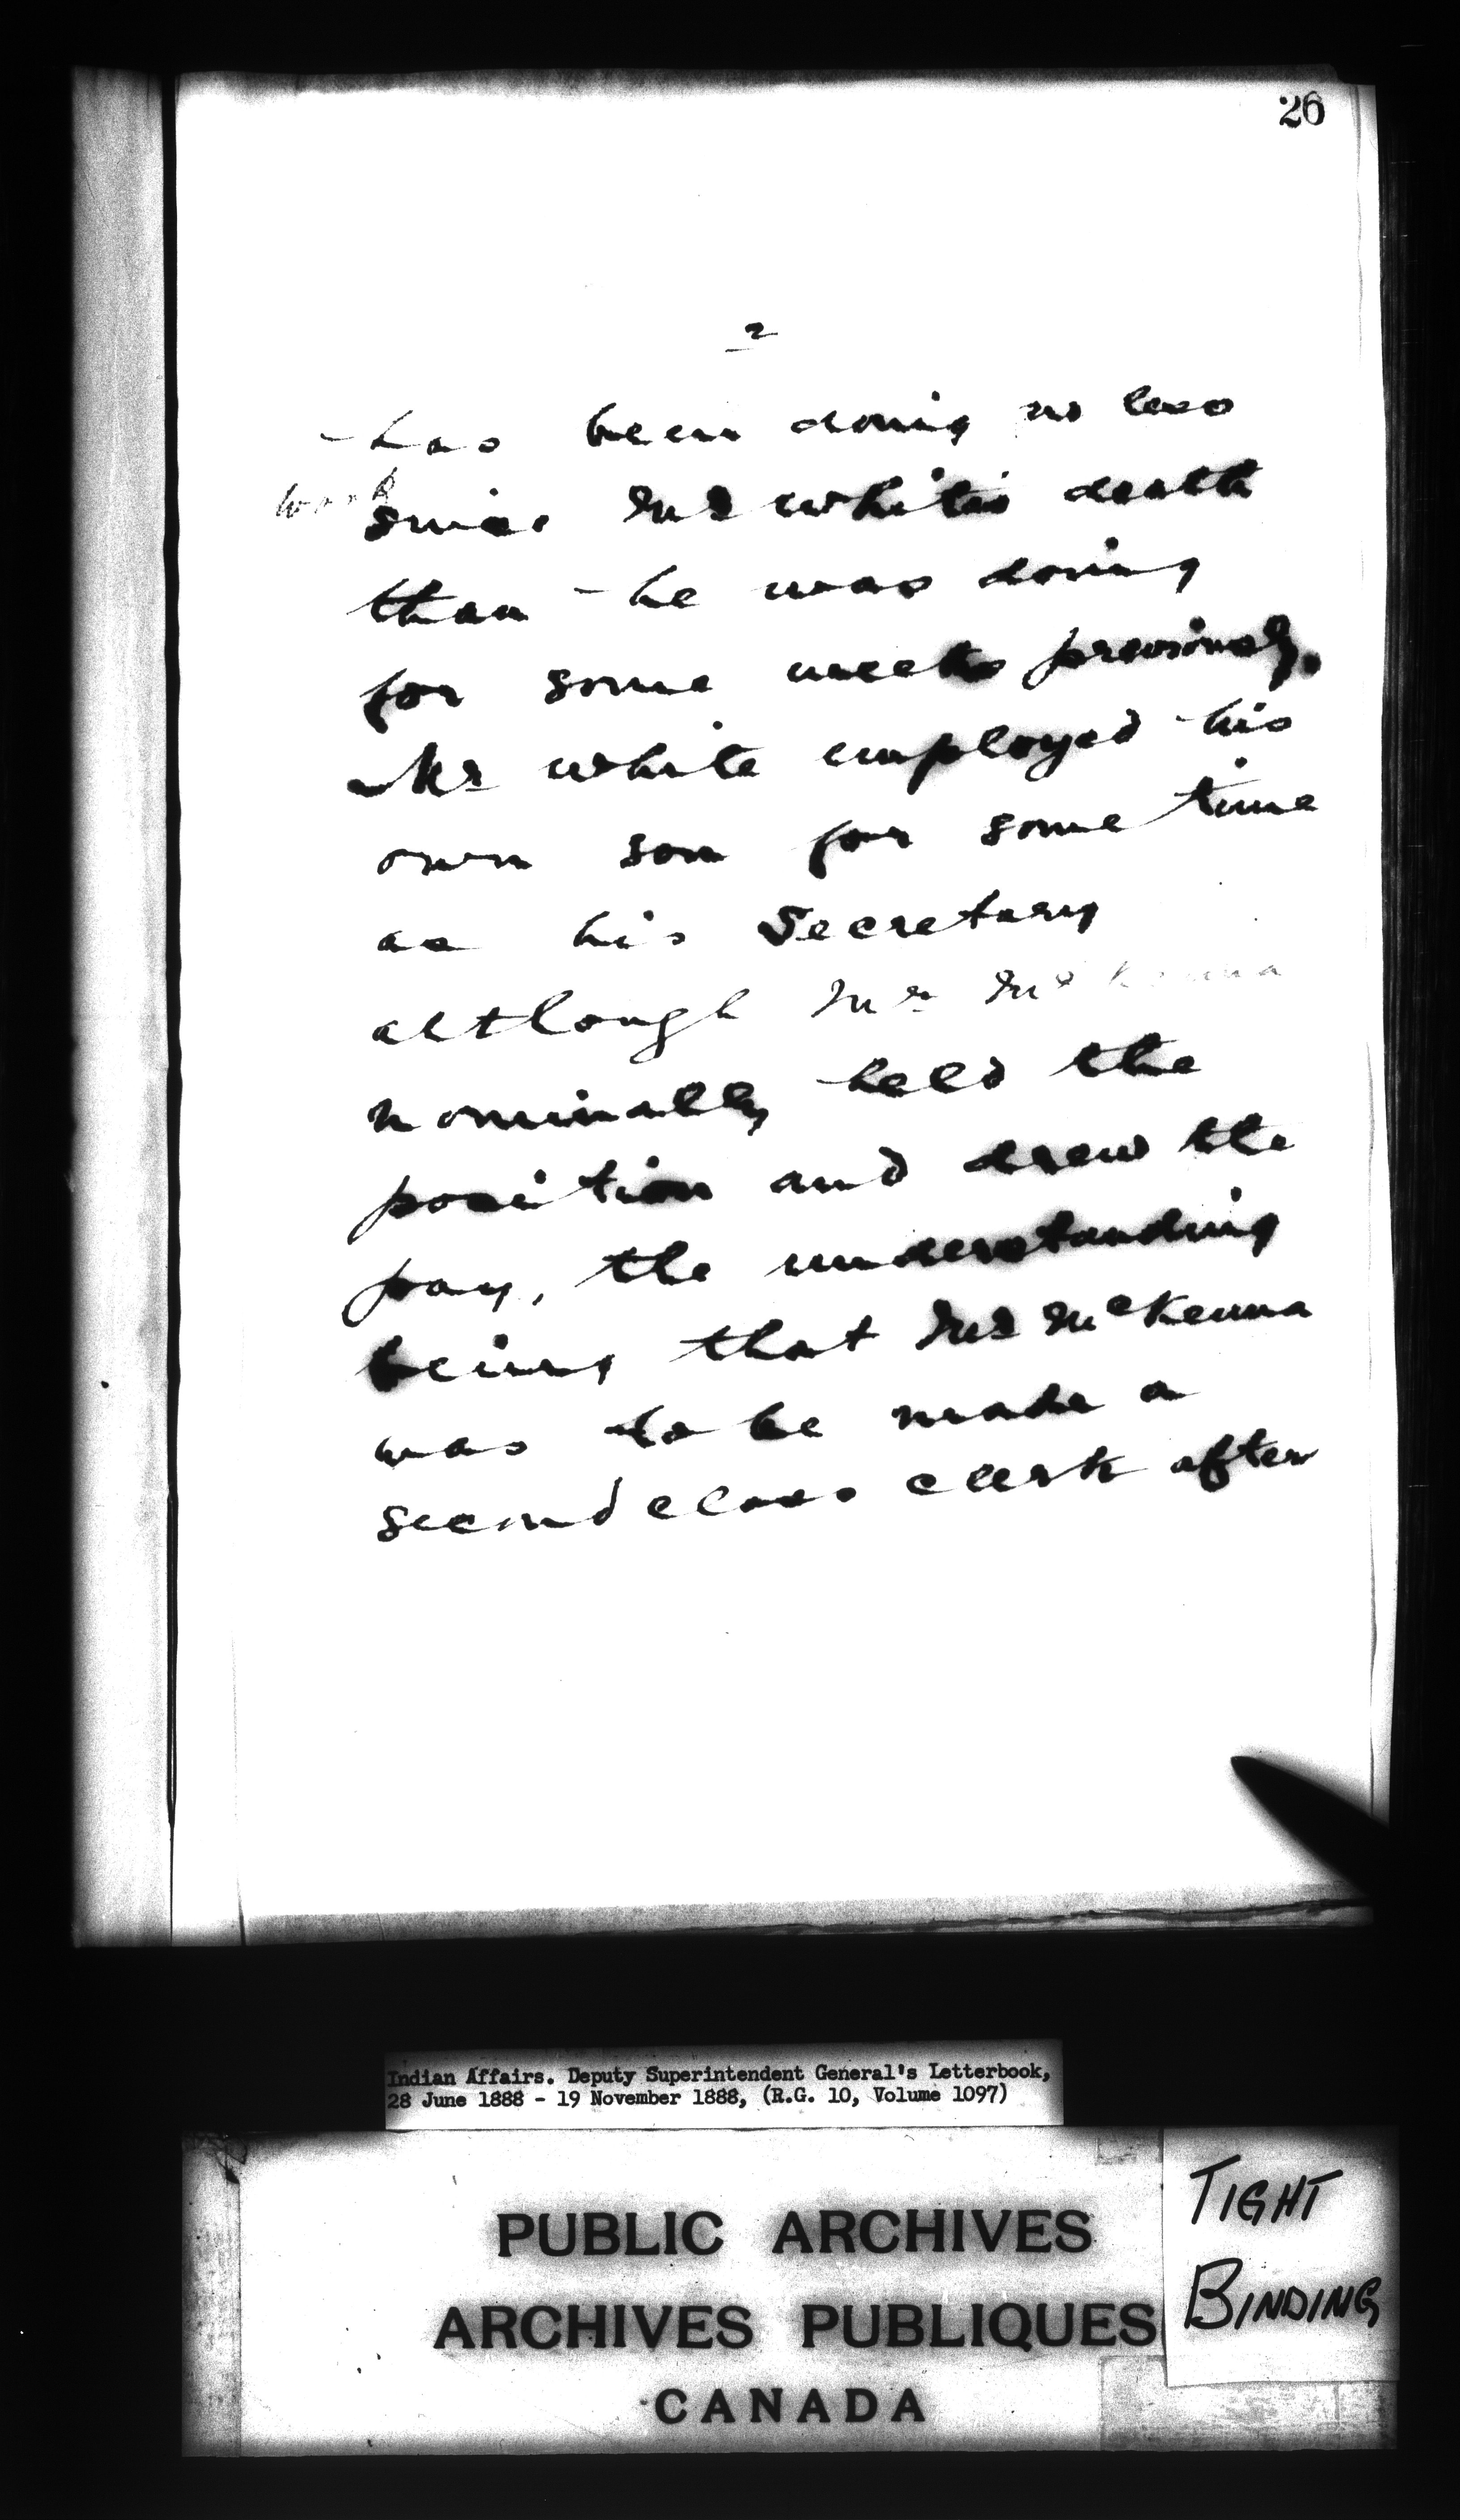 26
2
has been doing no less
work since Mr White's death
than he was doing
for some weeks previously.
Mr White employed his
own son for some time
as his Secretary
although Mr McKenna
nominally held the
position and drew the
pay, the understanding
being that Mr McKenna
was to be made a
second class clerk after
Indian Affairs. Deputy Superintendent General's Letterbook,
28 June 1888 - 19 November 1888, (R.G. 10, Volume 1097)
PUBLIC ARCHIVES
ARCHIVES PUBLIQUES
CANADA
TIGHT
BINDING